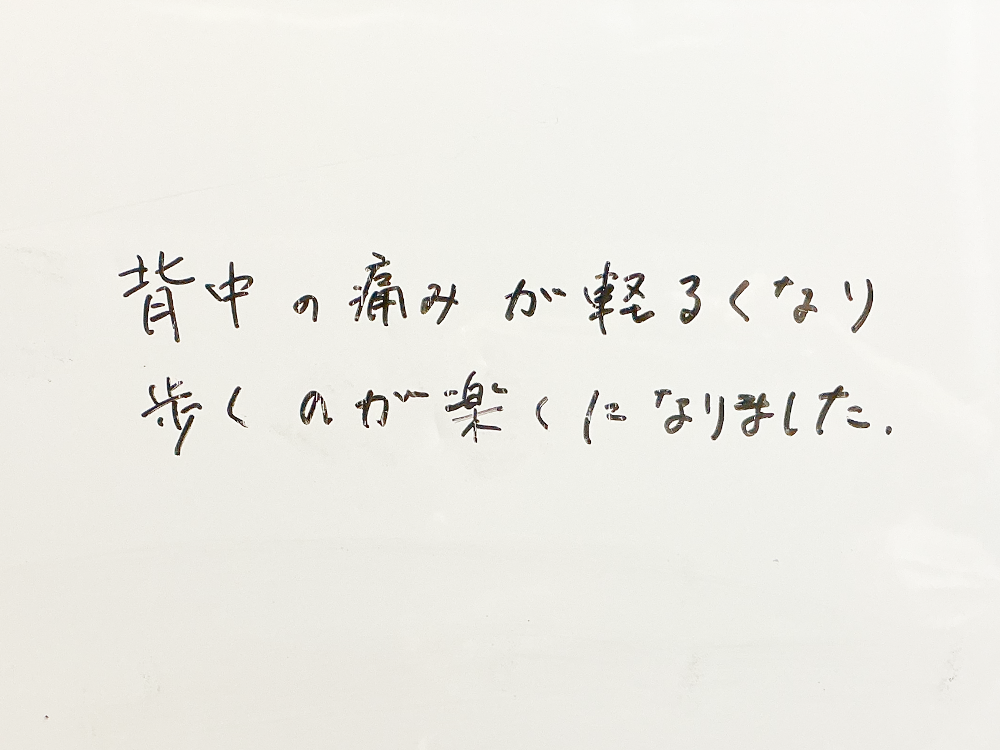 背中の痛みが軽るくなり
歩くのが楽くになりました.